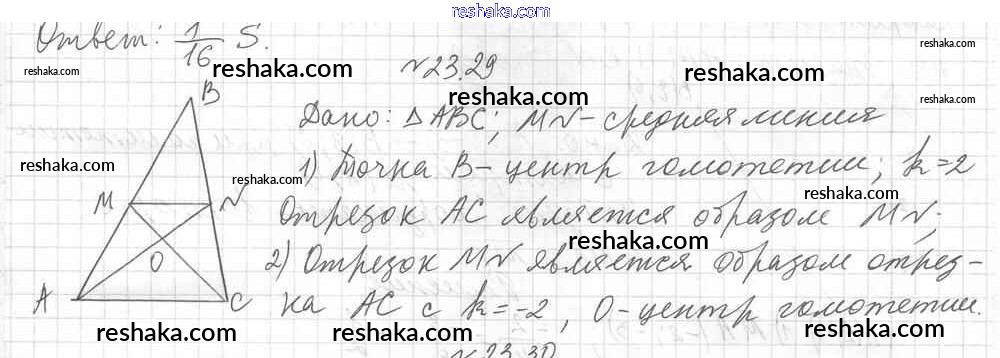 reshaka.com
Ответ: 1/16 S.
reshaka.com
reshaka.com
reshaka.com
№23.29
reshaka.com
reshaka.com
B
Дано: △ABC; MN – средняя линия
reshaka.com
reshaka.com
1) Точка B – центр гомотетии; k=2
reshaka.com
M N
Отрезок AC является образом MN;
reshaka.com
O
2) Отрезок MN является образом отрез-
A C
ка AC с k=-2, O – центр гомотетии.
reshaka.com
reshaka.com
reshaka.com
reshaka.com
№23.30